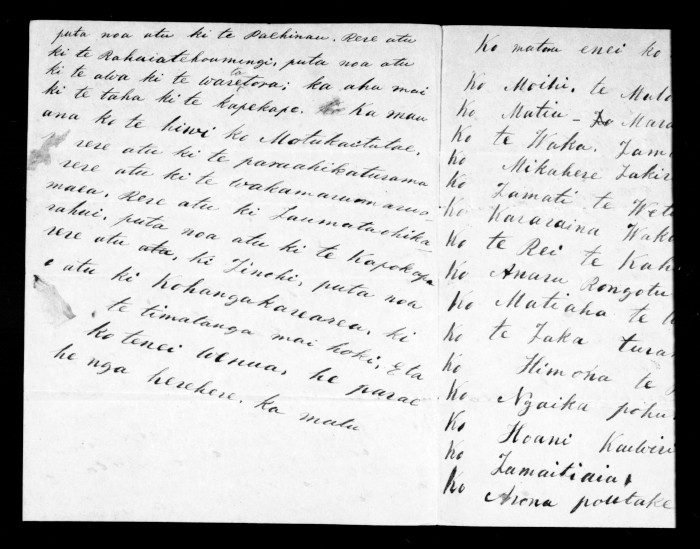 puta noa atu ki te Paehinau. Rere atu
ki te Rahuiatehoumingi, puta noa atu
ki te awa ki te waretova; ka ahu mai
ki te taha ki te kapekape. Ka mau
ana ko te hiwi ko Motukaitutae,
rere atu ki te paraahikaturama
rere atu ki te wakamarumarui
maea. Rere atu ki Taumataohika-
rahui, puta noa atu ki te Kapekape
rere atu atu, ki Tinohi, puta noa
atu ki Kohangakarearea, ki
te timatanga mai hoki, E ta
ko tenei wenua, he parae
he nga herehere. ka mutu
Ko matou enei ko
Ko Moihi, te
Ko Matiu - Ko
Ko te Waka.
Ko Mikahere
Ko Tamati te
Ko Kararaina
Ko te Rei te
Ko Anaru Rongotu
Ko Matiaha te
Ko te Taka
Ko Himona te
Ko Ngaika
Ko Hoani
Ko Tamaitiaia
Ko Arona poutake